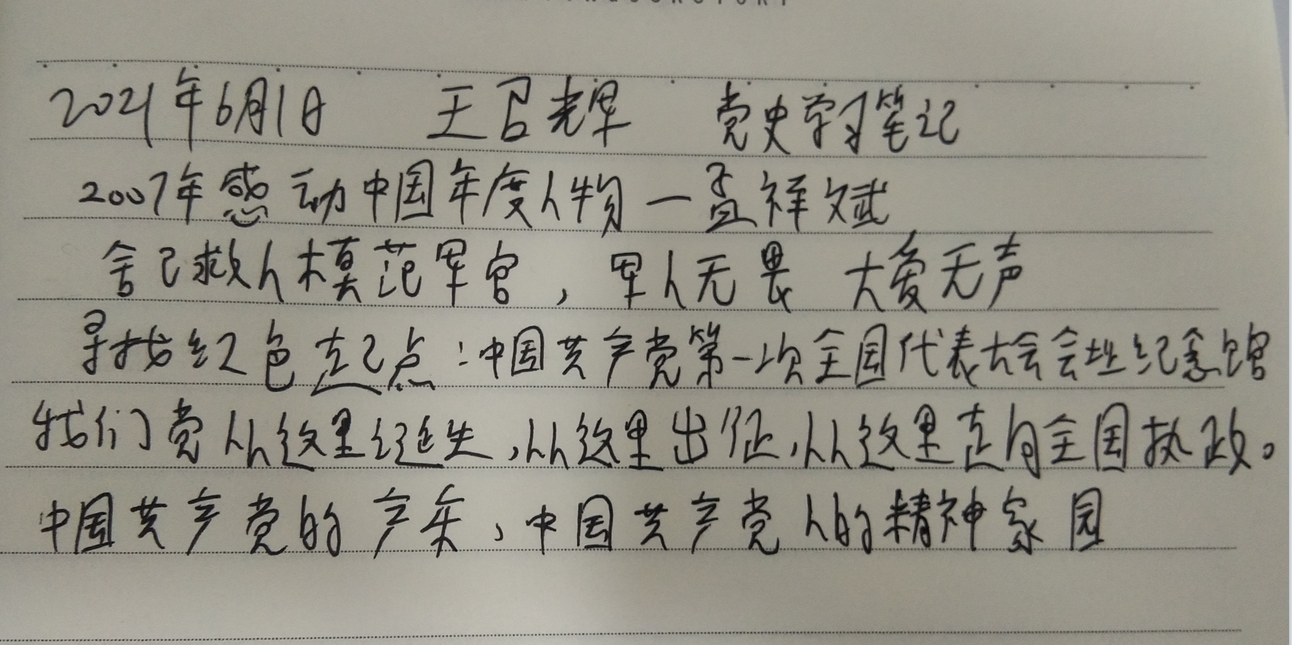 2021年6月1日 王召辉 党史学习笔记
2007年感动中国年度人物一孟祥斌
舍己救人模范军官，军人无畏 大爱无声
寻找红色起点：中国共产党第一次全国代表大会会址纪念馆
我们党从这里诞生，从这里出征，从这里走向全国执政。
中国共产党的产床，中国共产党人的精神家园